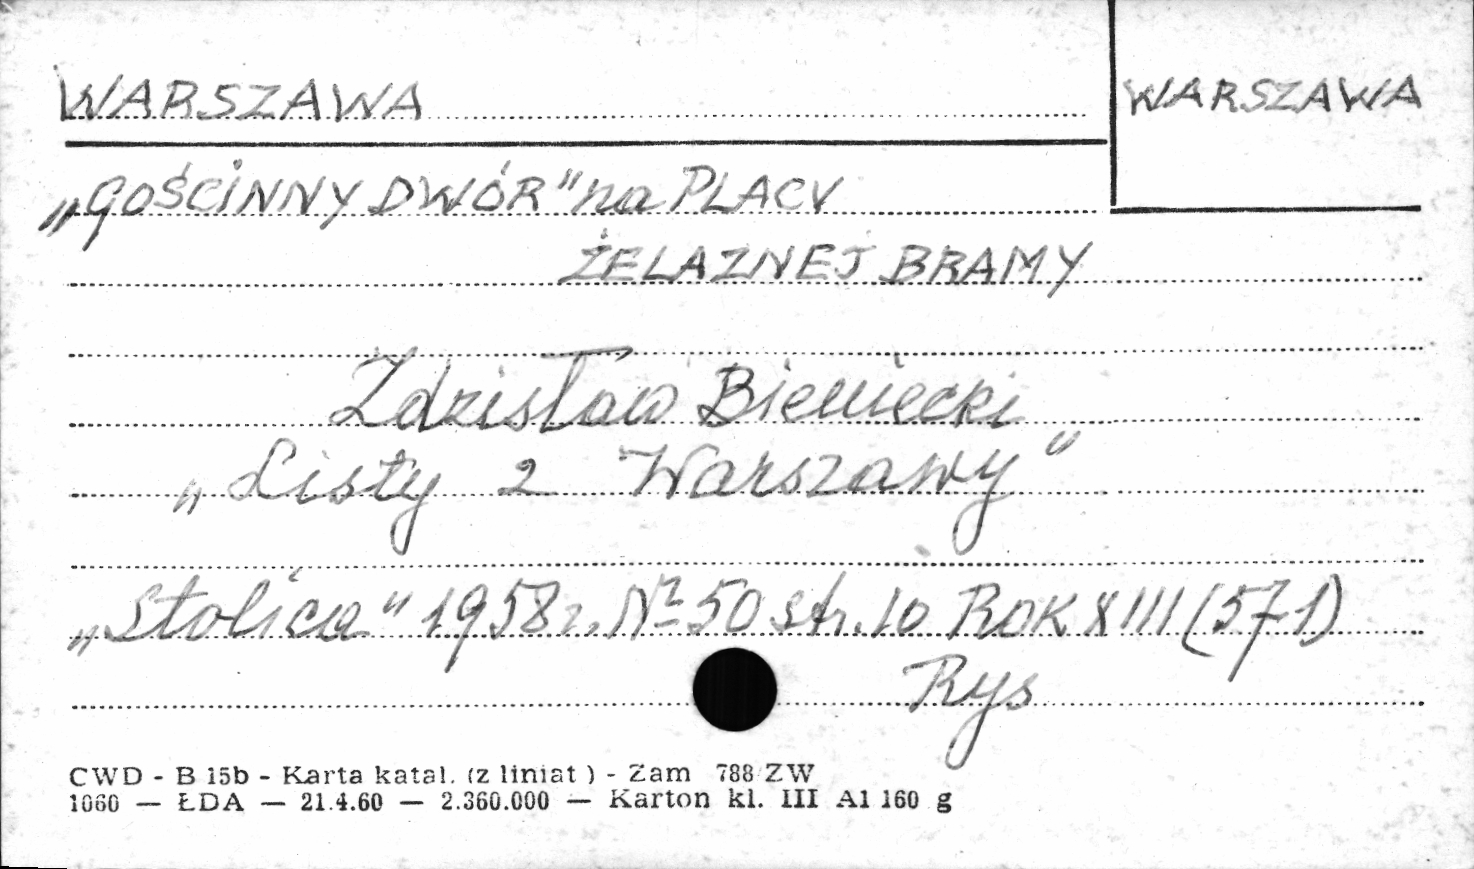 WARSZAWA
WARSZAWA
„GOŚCINNY DWÓR" na PLACU
ŻELAZNEJ BRAMY
Zdzisław Bieniecki
„Listy z Warszawy"
„Stolica" 1958r. Nº 50 str. 10 ROK XIII (571)
Rys
CWD - B 15b - Karta katal. (z liniat ) - Zam 788 ZW
1060 — ŁDA — 21.4.60 — 2.360.000 — Karton kl. III A1 160 g